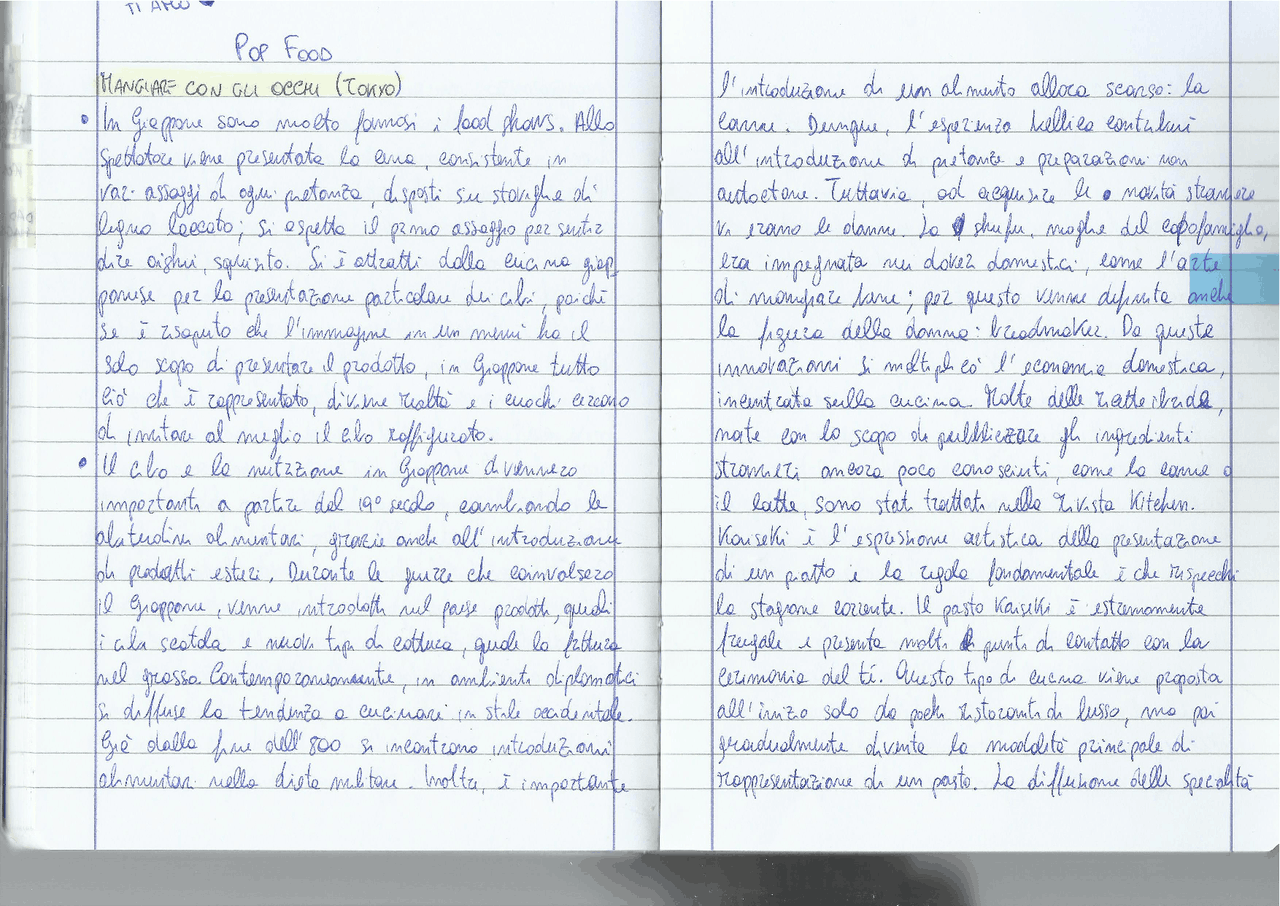 TI AMO
POP FOOD
MANGIARE CON GLI OCCHI (TOKYO)
In Giappone sono molto famosi i food shows. Allo
spettatore viene presentata la cena, consistente in
vari assaggi di ogni pietanza, disposti su stoviglie di
legno laccato; si aspetta il primo assaggio per sentir
dire oishii, squisito. Si è attratti dalla cucina giap
ponese per la presentazione particolare dei cibi, poichè
se è risaputo che l'immagine in un menù ha il
solo scopo di presentare il prodotto, in Giappone tutto
ciò che è rappresentato, diviene realtà e i cuochi cercano
di imitare al meglio il cibo raffigurato.
Il cibo e la nutrizione in Giappone divennero
importanti a partire dal 19° secolo, cambiando le
abitudini alimentari, grazie anche all'introduzione
di prodotti esteri. Durante le guerre che coinvolsero
il Giappone, venne introdotti nel paese prodotti, quali
i cibi scatola e nuovi tipi di cottura, quale la frittura
nel grasso. Contemporaneamente, in ambienti diplomatici
si diffuse la tendenza a cucinare in stile occidentale.
Già dalla fine dell'800 si incontrano introduzioni
alimentari nella dieta militare. Inoltre, è importante
l'introduzione di un alimento allora scarso: la
carne. Dunque, l'esperienza bellica contribuì
all'introduzione di pietanze e preparazioni non
autoctone. Tuttavia, ad acquisire le novità straniere
vi erano le donne. La shufu, moglie del capofamiglia,
era impegnata nei doveri domestici, come l'arte
di mangiare bene; per questo venne definita anche
la figura della donna: breadmaker. Da queste
innovazioni si moltiplicò l'economia domestica,
incentrata sulla cucina. Molte delle ricette ibride,
nate con lo scopo di pubblicizzare gli ingredienti
stranieri ancora poco conosciuti, come la carne o
il latte, sono stati trattati nella rivista Kitchen.
Kaiseki è l'espressione artistica della presentazione
di un piatto e la regola fondamentale è che rispecchi
la stagione corrente. Il pasto Kaiseki è estremamente
frugale e presenta molti punti di contatto con la
cerimonia del tè. Questo tipo di cucina viene proposta
all'inizio solo da pochi ristoranti di lusso, ma poi
gradualmente diventa la modalità principale di
rappresentazione di un pasto. La diffusione delle specialità